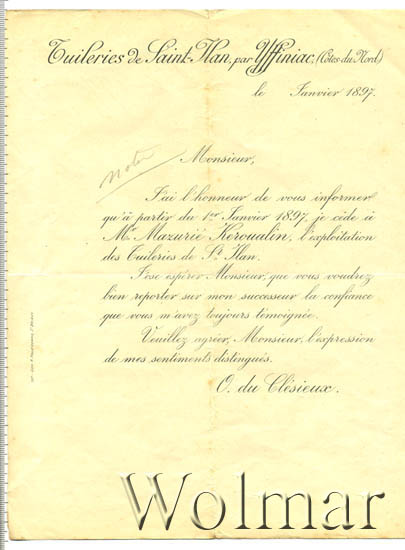 Tuileries de Saint-Ilan, par Yffiniac, (Côtes du Nord)
le Janvier 1897.
noter
Monsieur,
J'ai l'honneur de vous informer
qu'à partir du 1er Janvier 1897, je cède à
Mr Mazurié Keroualin, l'exploitation
des Tuileries de St Ilan.
J'ose espérer Monsieur, que vous voudrez
bien reporter sur mon successeur la confiance
que vous m'avez toujours témoignée.
Veuillez agréer, Monsieur, l'expression
de mes sentiments distingués.
O. du Clésieux.
Wolmar